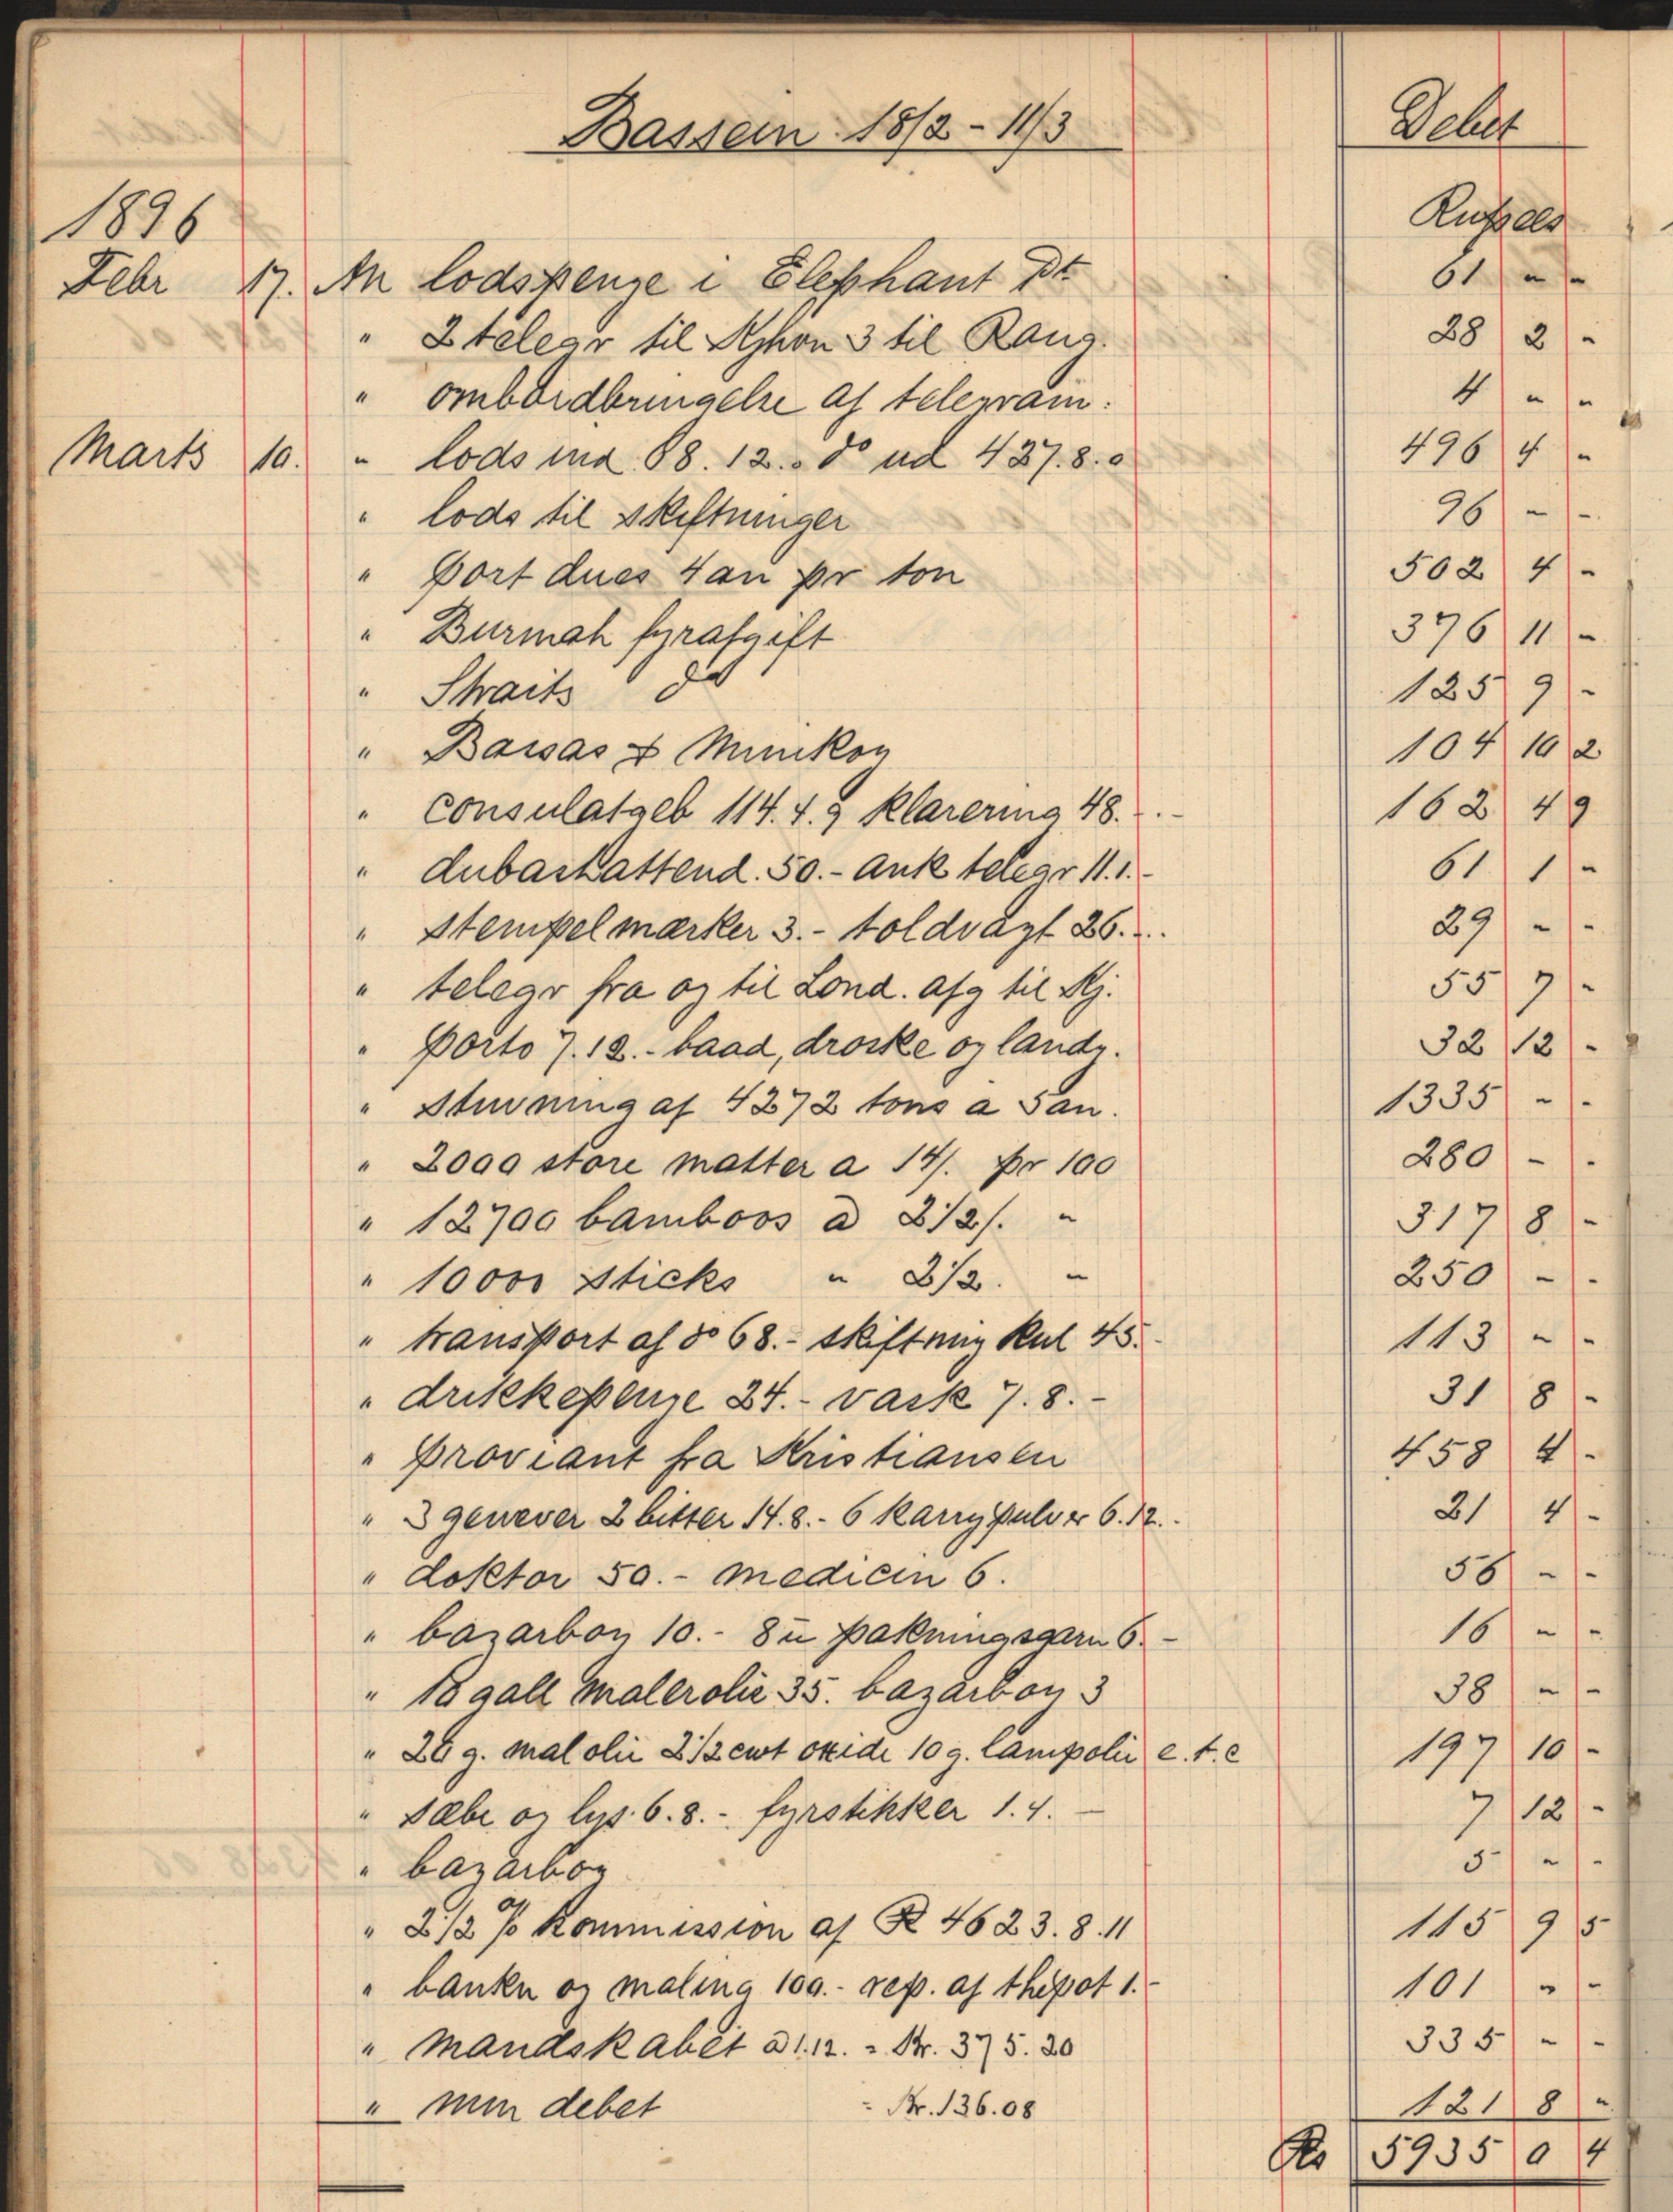 Bassein 18/2 - 11/3 Debet
1896 Rupees
Febr 17. An lodspenge i Elephant Pt 61 " "
" 2 telegr til Kjhvn 3 til Rang. 28 2 -
" ombordbringelse af telegram. 4 " "
Marts 10. " lods ind 68.12.. do ud 427.8.0 496 4 "
" lods til skiftninger 96 - -
" Port dues 4 an pr ton 502 4 -
" Burmah fyrafgift 376 11 -
" Straits do 125 9 -
" Bassas & Minikoy 104 10 2
" consulatgeb 114.4.9 klarering 48... - 162 4 9
" dubashattend. 50.- ank telegr 11.1.- 61 1 -
" stempelmærker 3.- toldvagt 26... 29 - -
" telegr fra og til Lond. afg til Kj. 55 7 -
" Porto 7.12.- baad, droske og landg. 32 12 -
" Stuvning af 4272 tons a 5 an. 1335 - -
" 2000 store matter a 14/. pr 100 280 - -
" 12700 bamboos a 2 1/2/. " 317 8 -
" 10000 sticks " 2 1/2. " 250 - -
" transport af do 68.- skiftning kul 45.- 113 - -
" drikkepenge 24.- vask 7.8.- 31 8 -
" Proviant fra Kristiansen 458 4 -
" 3 genever 2 bitter 14.8.- 6 karrypulver 6.12.- 21 4 -
" doktor 50.- medicin 6. 56 - -
" bazarbog 10.- 8 u pakningsgarn 6.- 16 - -
" 18 gall malerolie 35. bazarbog 3 38 - -
" 26 g. mal olie 2 1/2 cwt oxide 10 g. lampolie e.t.c 197 10 -
" Sæbe og lys. 6.8.- fyrstikker 1.4.- 7 12 -
" bazarbog 5 - -
" 2 1/2 % kommission af R 4623.8.11 115 9 5
" bankn og maling 100.- rep. af thepot 1.- 101 " -
" Mandskabet a 1.12. = Kr. 375.20 335 - -
" min debet = Kr. 136.08 121 8 "
Rs 5935 0 4